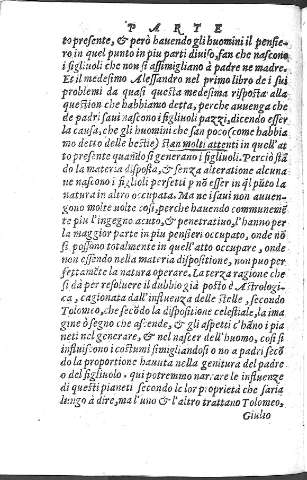 PARTE
to presente, & però havendo gli huomini il pensie-
ro in quel punto in piu parti diviso, fan che nascono
i figliuoli che non si assimigliano à padre ne madre.
Et il medesimo Alessandro nel primo libro de i sui
problemi da quasi questa medesima risposta alla
question che habbiamo detta, perche avuenga che
de padri savi nascono i figliuoli pazzi, dicendo esser
la causa, che gli huomini che san poco (come habbia
mo detto delle bestie) stan molti attenti in quell'at
to presente quando si generano i figliuoli. Perciò stā
do la materia disposta, & senza alteratione alcuna
ne nascono i figlioli perfetti p nō esser in q̃l pūto la
natura in altro occupata. Ma ne i savi non auuen-
gono molte volte cosi, perche havendo communemē
te piu l'ingegno acuto, & penetrativo, l'hanno per
la maggior parte in piu pensieri occupato, onde nō
si possono totalmente in quell'atto occupare, onde
non essendo nella materia dispositione, non puo per
fettamēte la natura operare. La terza ragione che
si dà per resoluere il dubbio già posto è Astrologi-
ca, cagionata dall'influenza delle stelle, secondo
Tolomeo, che secōdo la dispositione celestiale, la ima
gine ò segno che ascende, & gli aspetti c'hāno i pia
neti nel generare, & nel nascer dell'huomo, cosi si
influiscono i costumi simigliandosi o no a padri secō
do la proportione havuta nella genitura del padre
o del figliuolo. qui potremmo narrare le influenze
di questi pianeti secondo le lor proprietà che saria
lungo à dire, ma l'uno & l'altro trattano Tolomeo,
Giulio